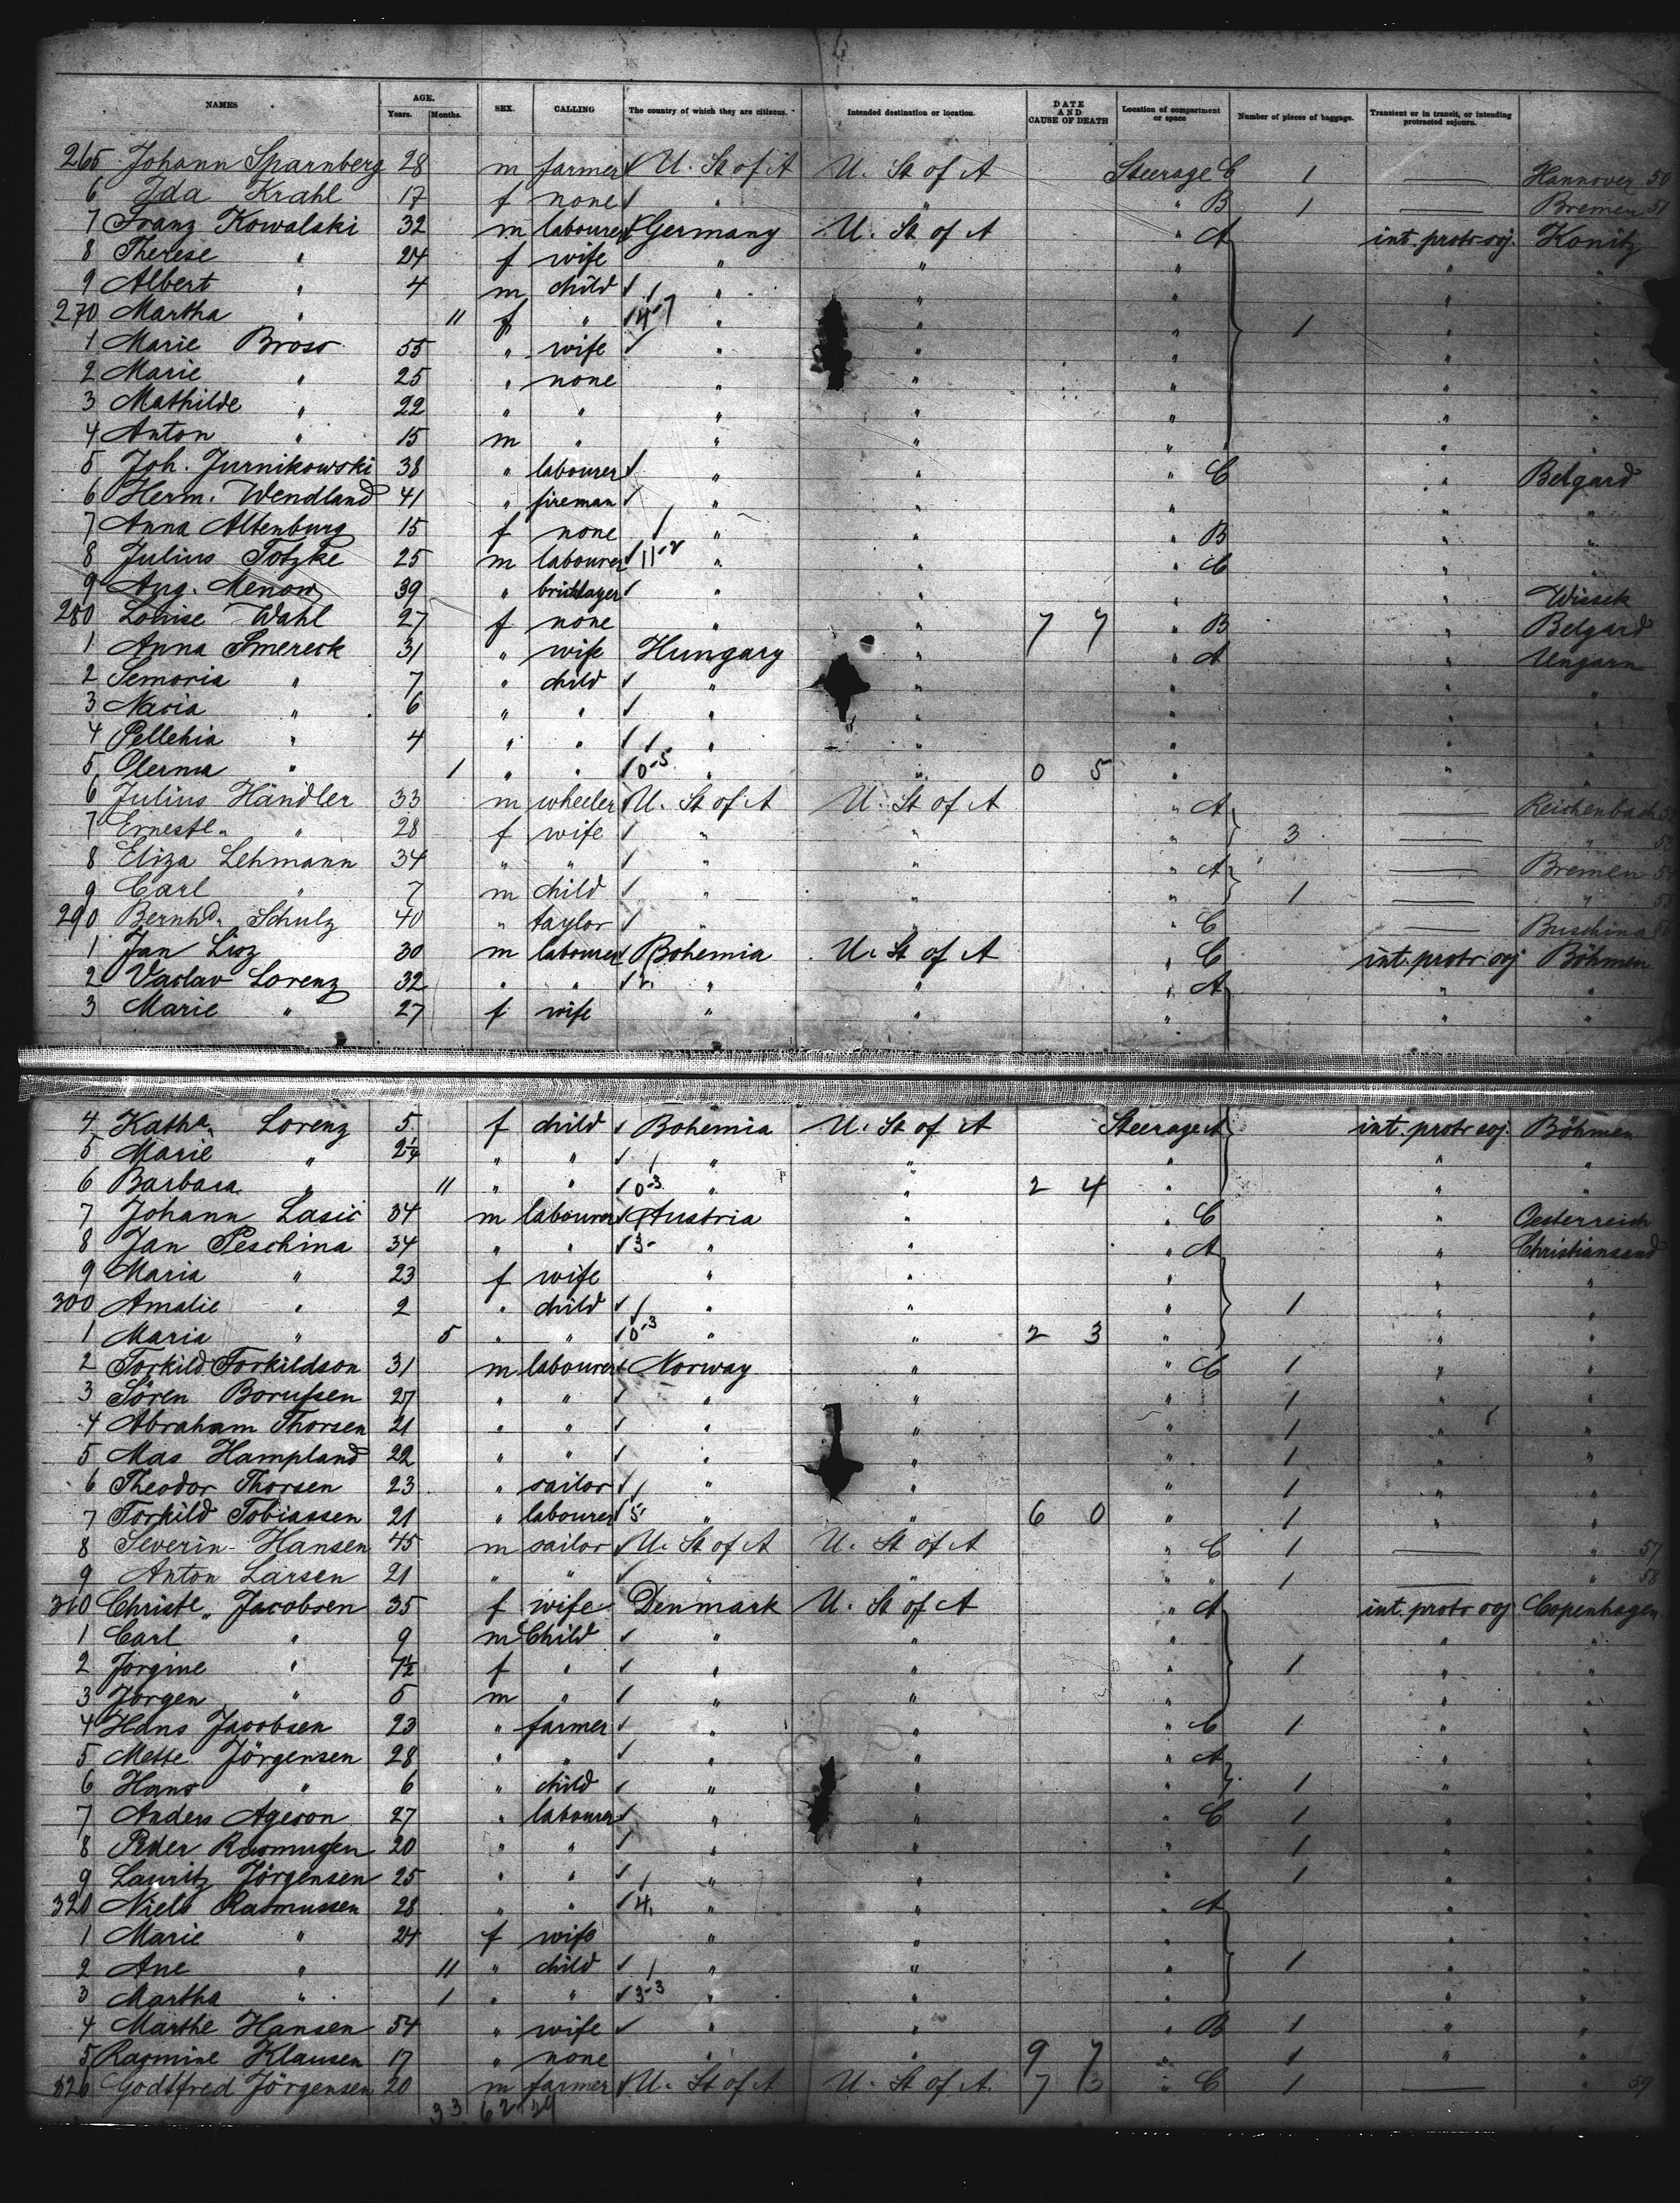 NAMES AGE. Years. Months. SEX. CALLING The country of which they are citizens. Intended destination or location. DATE AND CAUSE OF DEATH Location of compartment or space Number of pieces of baggage. Transient or in transit, or intending protracted sojourn.
265 Johann Sparnberg 28 m farmer U. St of A U. St of A Steerage C 1 — Hannover 50
6 Ida Krahl 17 f none " " " B 1 — Bremen 51
7 Franz Kowalski 32 m labourer Germany U. St of A " A int. protr soj. Konitz
8 Therese " 24 f wife " " " " "
9 Albert " 4 m child " " " "
270 Martha " 11 f " 4-7 " " " 1 "
1 Marie Bross 55 " wife " " " "
2 Marie " 25 " none " " " "
3 Mathilde " 22 " " " " " "
4 Anton " 15 m " " " " "
5 Joh. Jurnikowski 38 " labourer " " " C " Belgard
6 Herm. Wendland 41 " fireman " " " " "
7 Anna Altenburg 15 f none " " " B " "
8 Julius Totzke 25 m labourer 11-2 " " " C " "
9 Aug. Menow 39 " bricklayer " " " " Wissek
280 Louise Wahl 27 f none " " 7 7 " B " Belgard
1 Anna Smereck 31 " wife Hungary " " A " Ungarn
2 Semoria " 7 " child " " " " "
3 Naria " 6 " " " " " "
4 Pellehia " 4 " " " " " "
5 Olerma " 1 " " 0-5 " " 0 5 " " "
6 Julius Händler 33 m wheeler U. St of A U. St of A " A — Reichenbach
7 Ernestl. " 28 f wife " " " 3 — " 53
8 Eliza Lehmann 34 " " " " " A — Bremen 54
9 Carl " 7 m child " " " 1 — " 55
290 Bernhd. Schulz 40 " taylor " " " C — Buschina
1 Jan Lisz 30 m labourer Bohemia U. St of A " C int. protr soj Böhmen
2 Vaclav Lorenz 32 " " 2 " " " A " "
3 Marie " 27 f wife " " " " "
4 Katha. Lorenz 5 f child Bohemia U. St of A Steerage A int. protr soj. Böhmen
5 Marie " 2¼ " " " " " " "
6 Barbara " 11 " " 0-3 " " 2 4 " " "
7 Johann Lasic 34 m labourer Austria " " C " Oesterreich
8 Jan Peschina 34 " " 3- " " " A " Christiansand
9 Maria " 23 f wife " " " " "
300 Amalie " 2 " child " " " 1 " "
1 Maria " 5 " " 0-3 " " 2 3 " " "
2 Torkild Torkildson 31 m labourer Norway " " C 1 " "
3 Sören Borufsen 27 " " " " " 1 " "
4 Abraham Thorsen 21 " " " " " 1 " "
5 Mas Hampland 22 " " " " " 1 " "
6 Theodor Thorsen 23 " sailor " " " 1 " "
7 Torkild Tobiassen 21 " labourer 5 " " 6 0 " 1 " "
8 Severin Hansen 45 m sailor U. St of A U. St of A " C 1 — " 57
9 Anton Larsen 21 " " " " " " 1 — " 58
310 Christe. Jacobsen 35 f wife Denmark U. St of A " A int. protr soj Copenhagen
1 Carl " 9 m Child " " " " "
2 Jorgine " 7½ f " " " " 1 " "
3 Jorgen " 5 m " " " " " "
4 Hans Jacobsen 23 " farmer " " " C 1 " "
5 Mette Jörgensen 28 " " " " " A " "
6 Hans " 6 " child " " " 1 " "
7 Anders Ageson 27 " labourer " " " C 1 " "
8 Peder Rasmussen 20 " " " " " 1 " "
9 Lauritz Jörgensen 25 " " " " " 1 " "
320 Niels Rasmussen 28 " " 4 " " " A " "
1 Marie " 24 f wife " " " " "
2 Ane " 11 " child " " " 1 " "
3 Martha " 1 " " 3-3 " " " " "
4 Marthe Hansen 54 " wife " " " B 1 " "
5 Rasmine Klausen 17 " none " " 9 7 " 1 " "
326 Godtfred Jörgensen 20 m farmer U. St of A U. St of A. 7 3 " C 1 — " 59
33 62 29